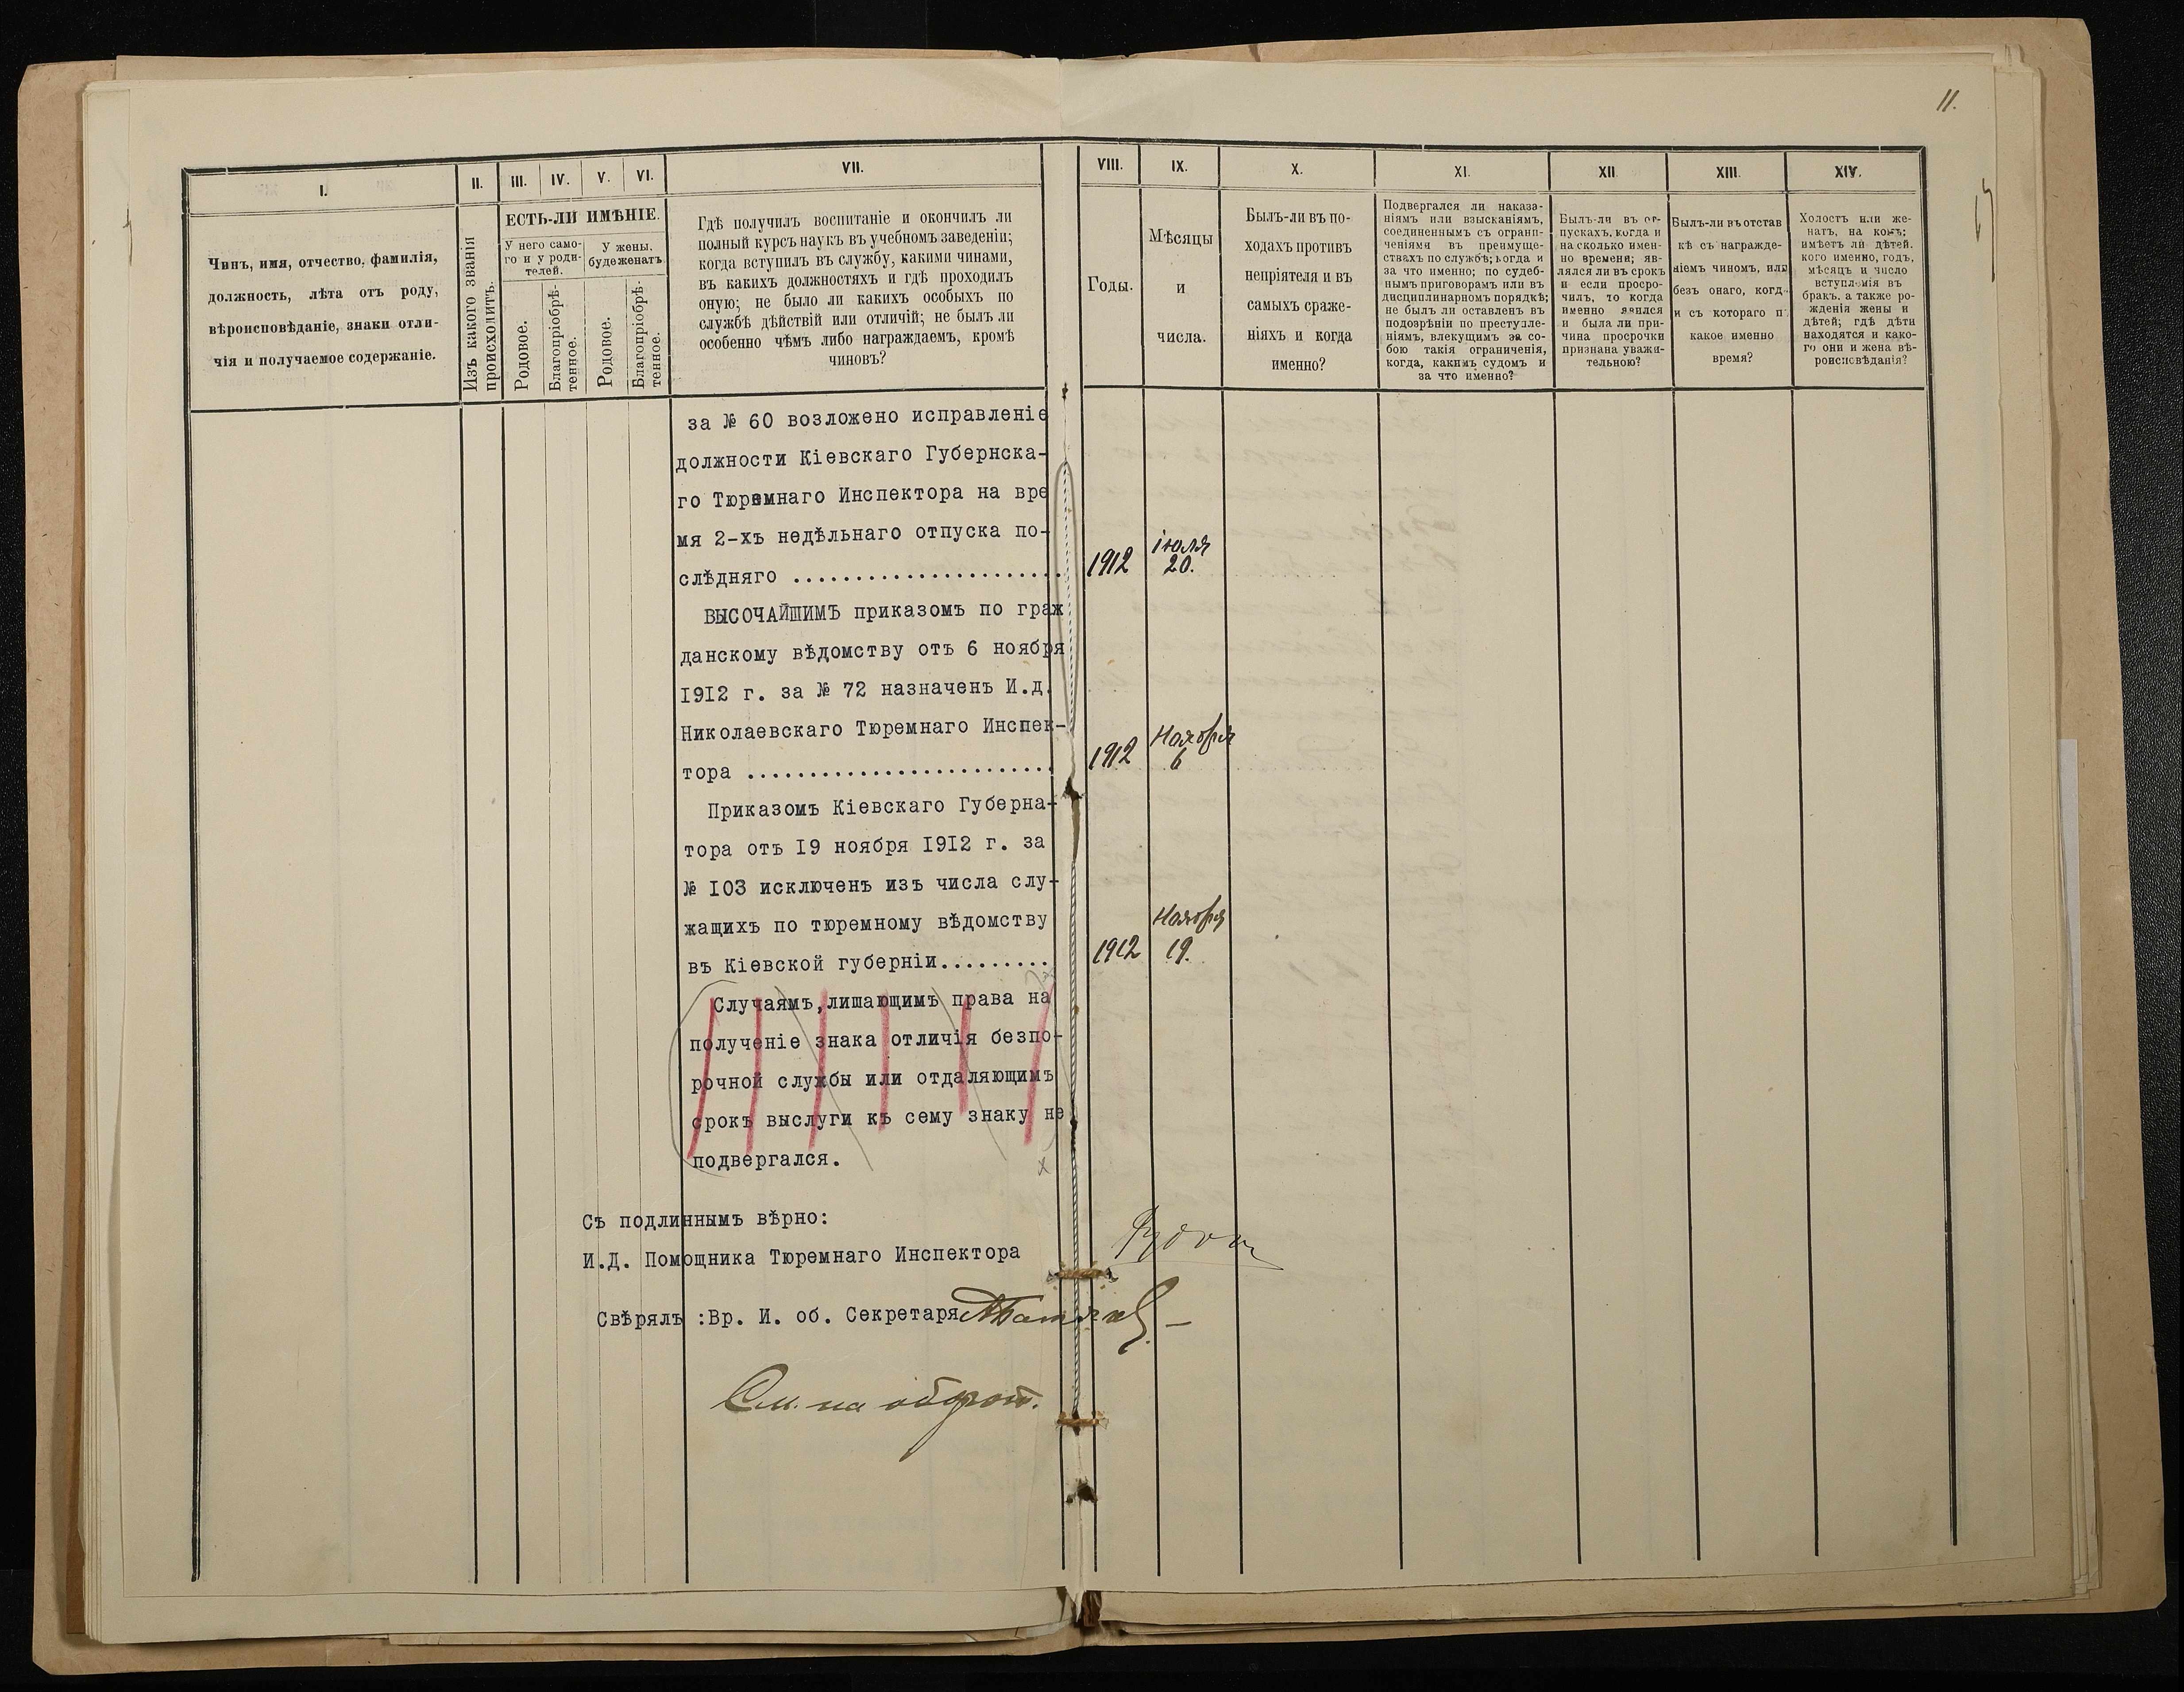 11.
I.
II.
III.
IV.
V.
VI.
VII.
VIII.
IX.
X.
XI.
XII
XIII.
XIV.
Чинъ, имя, отчество, фамилія,
должность, лѣта отъ роду,
вѣроисповѣданіе, знаки отли-
чія и получаемое содержаніе.
Изъ какого званія
происходитъ.
ЕСТЬ-ЛИ ИМѢНІЕ.
У него само-
го и у роди-
телей.
У жены,
буде женатъ
Родовое.
Благопріобрѣ-
тенное.
Родовое.
Благопріобрѣ-
тенное.
Гдѣ получилъ воспитаніе и окончилъ ли
полный курсъ наукъ въ учебномъ заведеніи;
когда вступилъ въ службу, какими чинами,
въ какихъ должностяхъ и гдѣ проходилъ
оную; не было ли какихъ особыхъ по
службѣ дѣйствій или отличій; не былъ ли
особенно чѣмъ либо награждаемъ, кромѣ
чиновъ?
Годы.
Мѣсяцы
и
числа.
Былъ-ли въ по-
ходахъ противъ
непріятеля и въ
самыхъ сраже-
ніяхъ и когда
именно?
Подвергался ли наказа-
ніямъ или взысканіямъ,
соединеннымъ съ ограни-
ченіями въ преимуще-
ствахъ по службѣ; когда и
за что именно; по судеб-
нымъ приговорамъ или въ
дисциплинарномъ порядкѣ;
не былъ ли оставленъ въ
подозрѣніи по преступле-
ніямъ, влекущимъ за со-
бою такія ограниченія,
когда, какимъ судомъ и
за что именно?
Былъ-ли въ от-
пускахъ, когда и
на сколько имен-
но времени; яв-
лялся ли въ срокъ
и если просро-
чилъ, то когда
именно явился
и была ли при-
чина просрочки
признана уважи-
тельною?
Былъ-ли въ отстав
кѣ съ награжде-
ніемъ чиномъ, или
безъ онаго, когд
и съ котораго п
какое именно
время?
Холостъ или же-
натъ, на комъ;
имѣетъ ли дѣтей.
кого именно, годъ,
мѣсяцъ и число
вступленія въ
бракъ, а также ро-
жденія жены и
дѣтей; гдѣ дѣти
находятся и како-
го они и жена вѣ-
роисповѣданія?
за № 60 возложено исправленіе
должности Кіевскаго Губернска-
го Тюремнаго Инспектора на вре
мя 2-хъ недѣльнаго отпуска по-
слѣдняго ...................... 1912 іюля 20.
ВЫСОЧАЙШИМЪ приказомъ по граж
данскому вѣдомству отъ 6 ноября
1912 г. за № 72 назначенъ И.д.
Николаевскаго Тюремнаго Инспек-
тора ......................... 1912 Ноября 6
Приказомъ Кіевскаго Губерна-
тора отъ 19 ноября 1912 г. за
№ 103 исключенъ изъ числа слу-
жащихъ по тюремному вѣдомству
въ Кіевской губерніи......... 1912 Ноября 19.
Случаямъ,лишающимъ права на
полученіе знака отличія безпо-
рочной службы или отдаляющимъ
срокъ выслуги къ сему знаку не
подвергался.
Съ подлиннымъ вѣрно:
И.Д. Помощника Тюремнаго Инспектора
Свѣрялъ :Вр. И. об. Секретаря
См. на оборот.